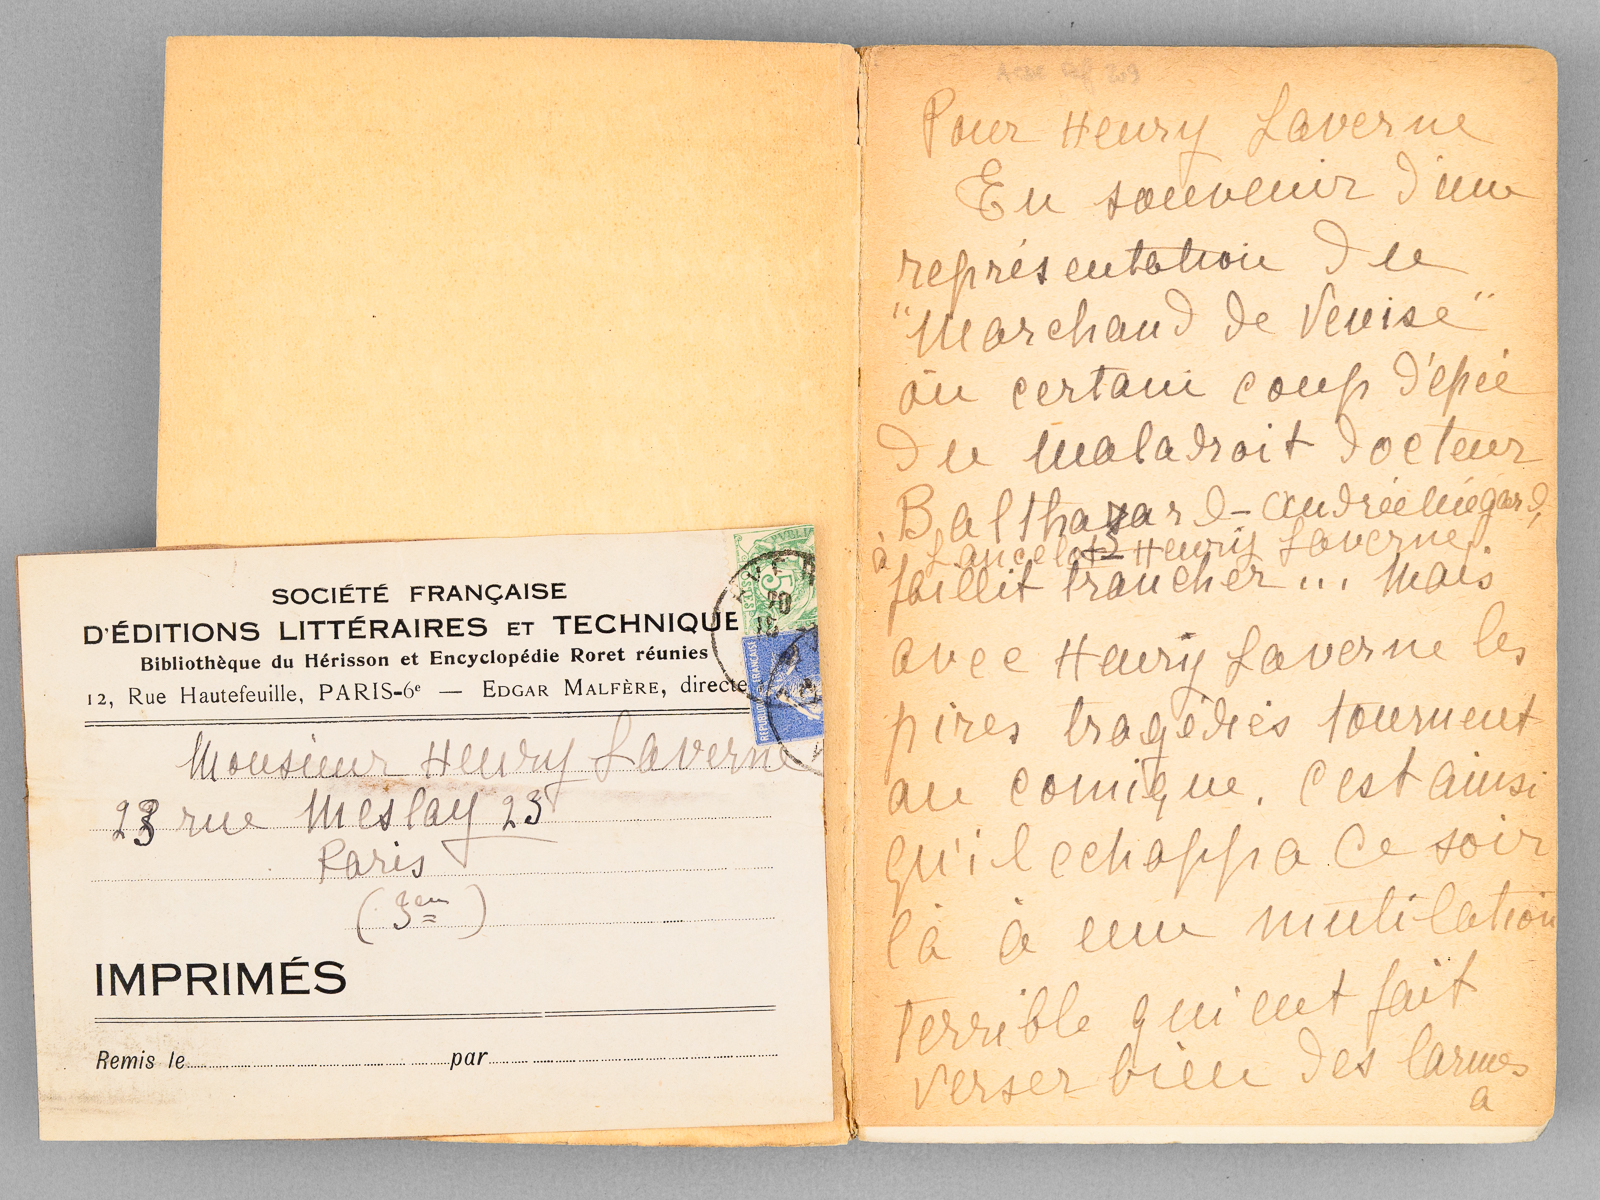 SOCIÉTÉ FRANÇAISE
D'ÉDITIONS LITTÉRAIRES ET TECHNIQUE
Bibliothèque du Hérisson et Encyclopédie Roret réunies
12, Rue Hautefeuille, PARIS-6e — EDGAR MALFÈRE, directe
5
RÉPUBLIQUE FRANÇAISE
Monsieur Henry Laverne
23 rue Meslay 23
Paris
(3em)
IMPRIMÉS
Remis le par
209
Pour Henry Laverne
En souvenir d'une
représentation du
"Marchand de Venise"
où certain coup d'épée
du maladroit docteur
Balthazard - Andrée Mégard,
à Lancelot Henry Laverne,
faillit trancher... Mais
avec Henry Laverne les
pires tragédies tournent
au comique. C'est ainsi
qu'il echappa ce soir
là à une mutilation
terrible qui eut fait
verser bien des larmes
a